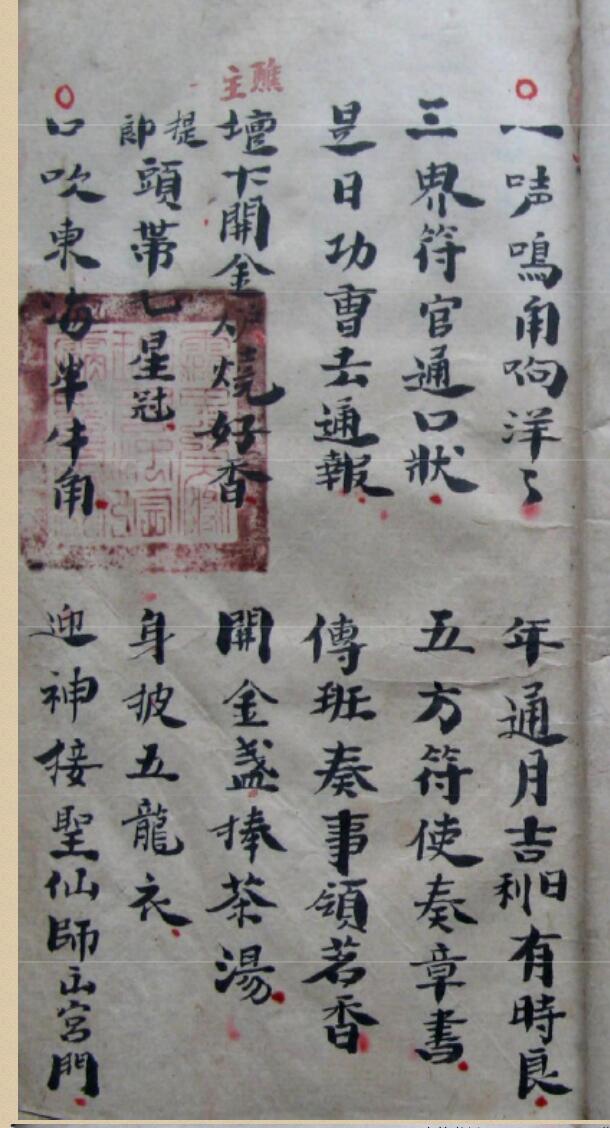 一声鳴角响洋〻 年通月吉日利有時良
三界符官通口狀 五方符使奏章書
是日功曹去通報 傳班奏事領茗香
醮主
壇下開金炉燒好香 開金盞捧茶湯
提即頭帶七星冠 身披五龍衣
口吹東海半牛角 迎神接聖仙師出宮門